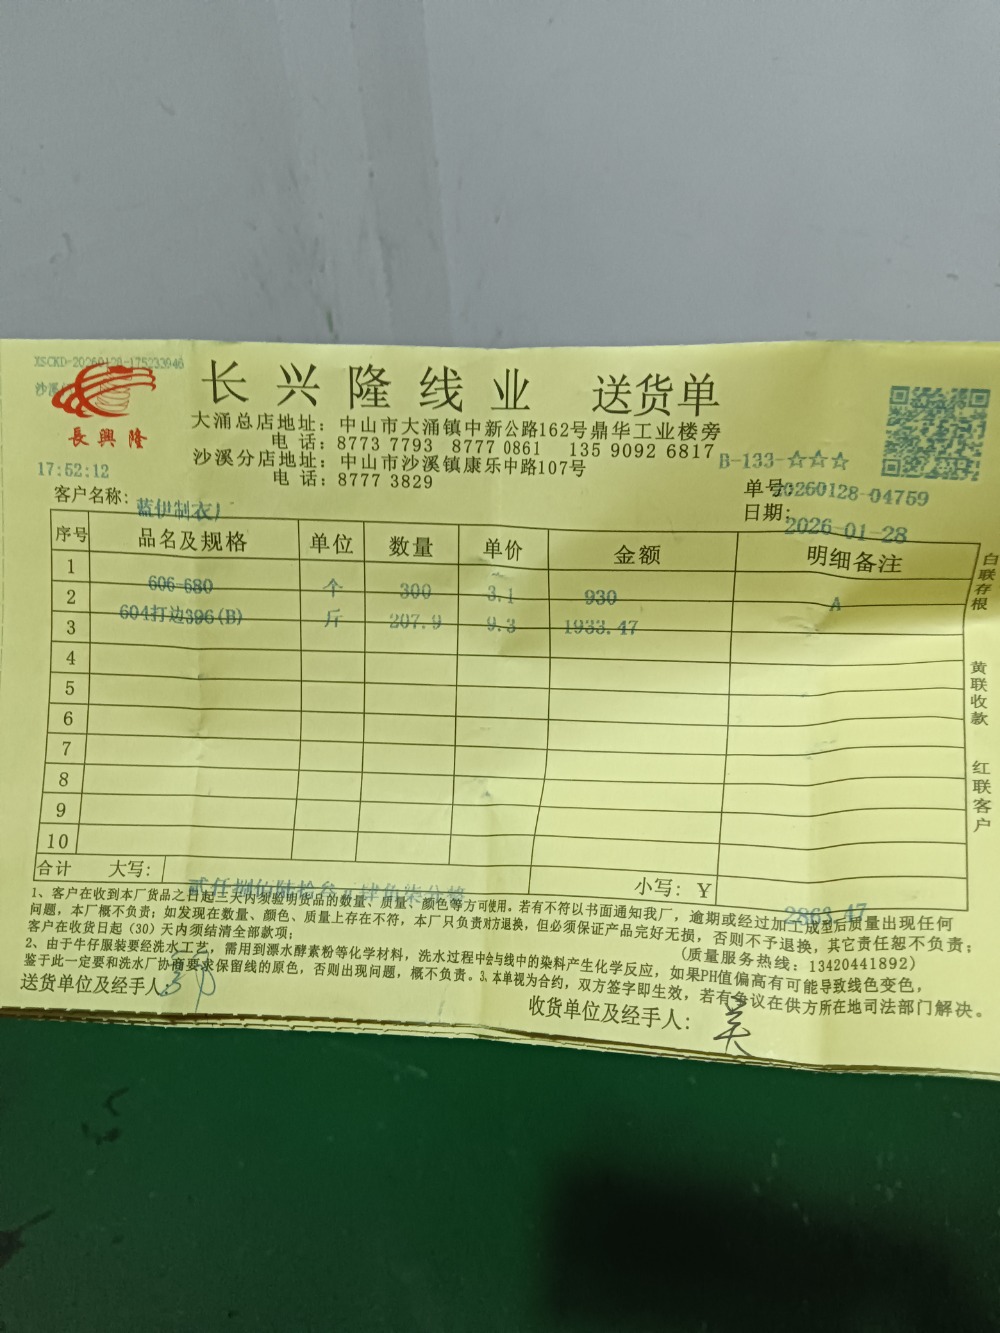 XSCKD-20260128-175233946
長興隆
长兴隆线业 送货单
大涌总店地址：中山市大涌镇中新公路162号鼎华工业楼旁
电 话：8773 7793 8777 0861 135 9092 6817
沙溪分店地址：中山市沙溪镇康乐中路107号
电 话：8777 3829
B-133-☆☆☆
17:52:12
单号：20260128-04759
客户名称：蓝伊制衣厂
日期：2026-01-28
序号 品名及规格 单位 数量 单价 金额 明细备注
1 606-680 个 300 3.1 930 A
2 604打边396(B) 斤 207.9 9.3 1933.47
3
4
5
6
7
8
9
10
合计 大写： 小写：Y 2863.47
白联存根
黄联收款
红联客户
1、客户在收到本厂货品之日起三天内须验明货品的数量、质量、颜色等方可使用。若有不符以书面通知我厂，逾期或经过加工成型后质量出现任何
问题，本厂概不负责；如发现在数量、颜色、质量上存在不符，本厂只负责对方退换，但必须保证产品完好无损，否则不予退换，其它责任恕不负责；
客户在收货日起（30）天内须结清全部款项；
（质量服务热线：13420441892）
2、由于牛仔服装要经洗水工艺，需用到漂水酵素粉等化学材料，洗水过程中会与线中的染料产生化学反应，如果PH值偏高有可能导致线色变色，
鉴于此一定要和洗水厂协商要求保留线的原色，否则出现问题，概不负责。3、本单视为合约，双方签字即生效，若有争议在供方所在地司法部门解决。
送货单位及经手人：
收货单位及经手人：